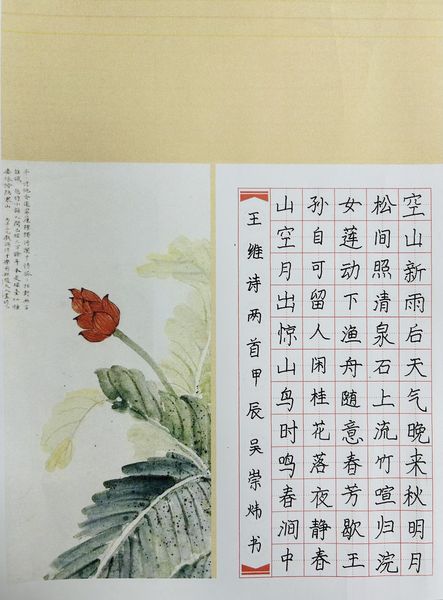 空山新雨后天气晚来秋明月
松间照清泉石上流竹喧归浣
女莲动下渔舟随意春芳歇王
孙自可留人闲桂花落夜静春
山空月出惊山鸟时鸣春涧中
王维诗两首甲辰吴崇炜书